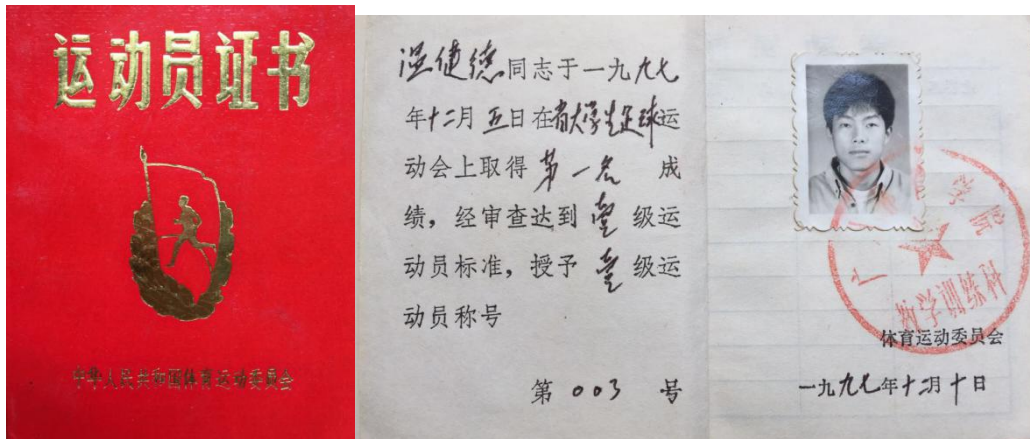 运动员证书
中华人民共和国体育运动委员会
温建德同志于一九九七
年十二月五日在省大学生足球运
动会上取得第一名 成
绩，经审查达到壹级运
动员标准，授予壹级运
动员称号
第 003 号
教学训练科
体育运动委员会
一九九七年十二月十日